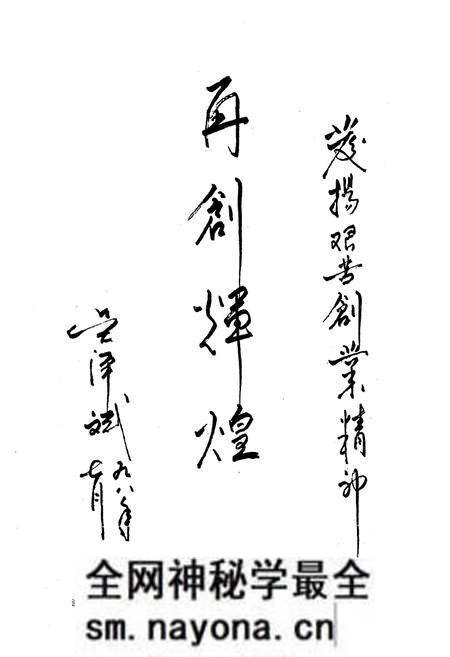 發揚艰苦創業精神
再創輝煌
吴泽斌
九八年
七月
全网神秘学最全
sm.nayona.cn